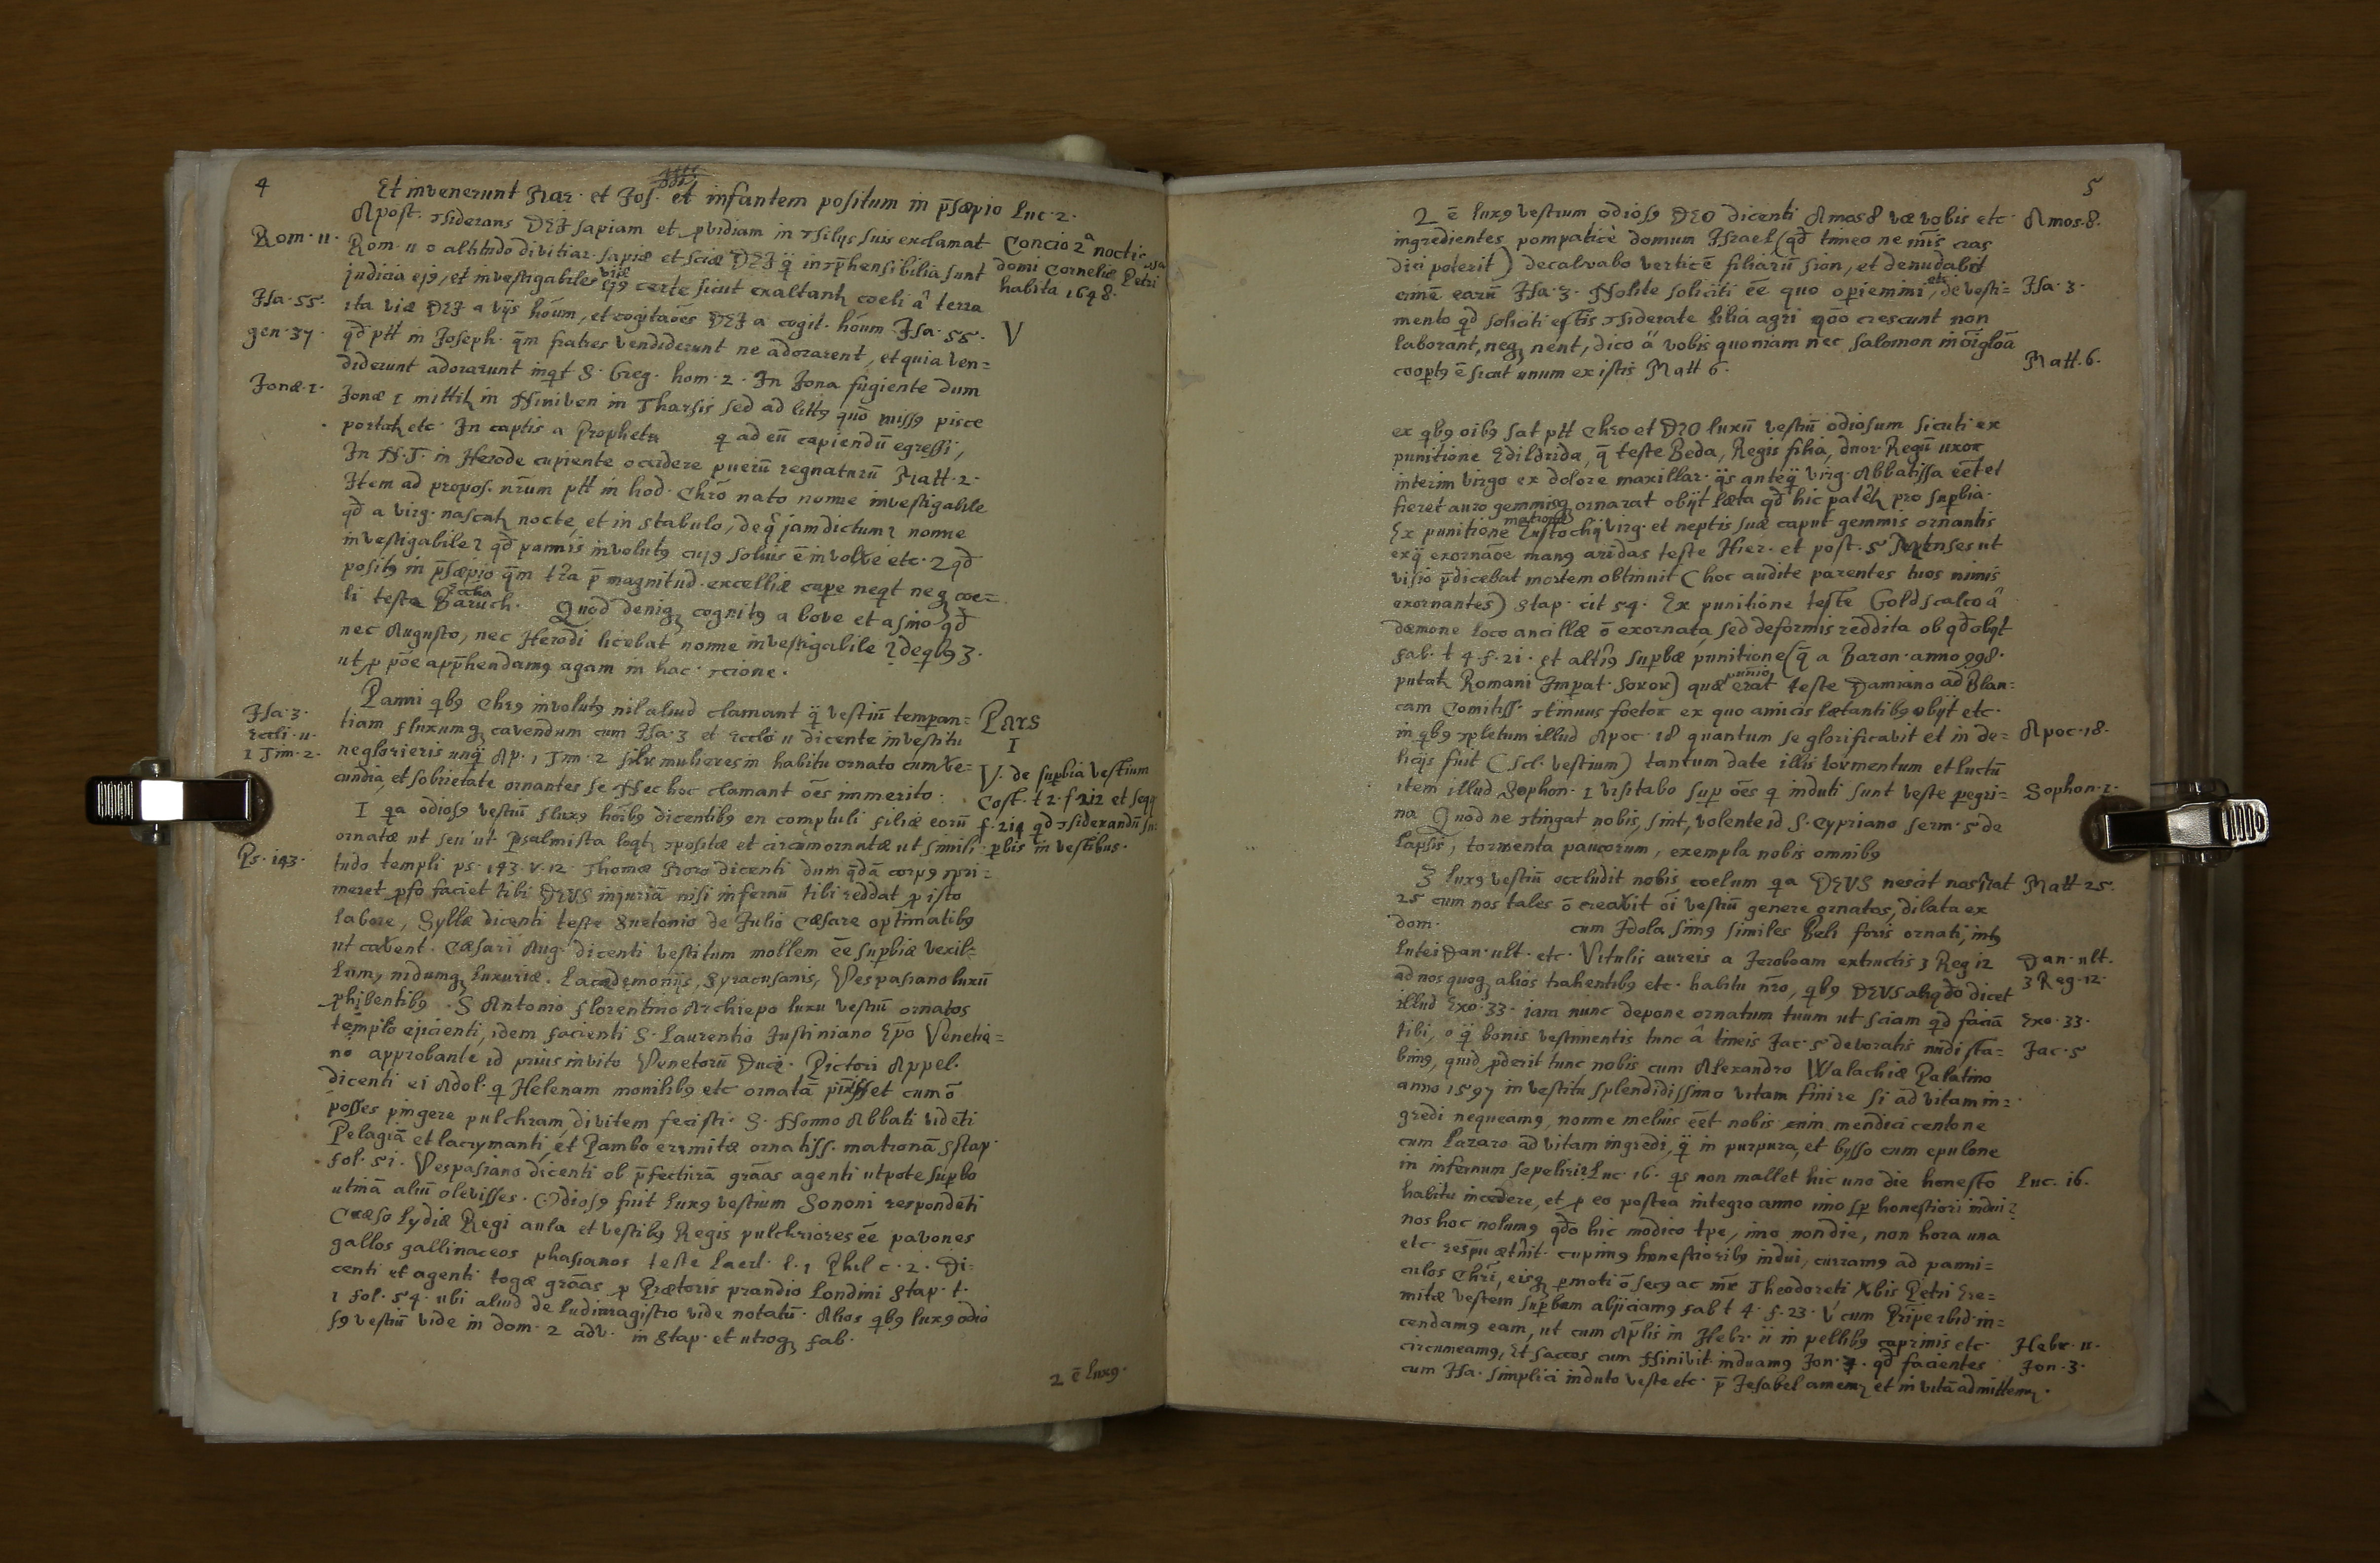 4
Et invenerunt Mar. et Jos. et infantem positum in p̄sæpio Luc. 2.
Apost. ꝯsiderans DEI sapiam et ꝓvidiam in ꝯsilijs suis exclamat
Concio 2ª noctis
domi Corneliæ Petri
habita 1648.
Rom. 11.
Rom. 11 o altitudo divitiar. sapiæ et sciæ DEI q̄ inꝯp̄hensibilia sunt
judicia ejꝯ, et investigabiles viæ ejꝯ certe sicut exaltant coeli â terra
Isa. 55.
ita viæ DEI a vijs hoūm, et cogitaōes DEI a cogit. hoūm Isa. 55.
V
gen. 37.
qd̄ ptt in Joseph. q̄m fratres vendiderunt ne adorarent, et quia ven=
diderunt adorarunt inqt S. Greg. hom. 2. In Jona fugiente dum
Jonæ. 1.
Jonæ 1 mittit in Niniven in Tharsis sed ad littꝯ quō missꝯ pisce
portat etc. In captis a Propheta q ad eū capiendū egressi,
In N.T. in Herode cupiente occidere puerū regnaturū Matt. 2.
Item ad propos. nr̄um ptt in hod. Chrō nato nonne investigabile
qd̄ a virg. nascat nocte, et in stabulo, de q̄ jam dictum? nonne
investigabile? qd̄ pannis involutꝯ cujꝯ soluis ē involvere etc. 2 qd̄
positꝯ in p̄sæpio q̄m trā p̄ magnitud. excelliæ cape neqt neq coe=
li teste Baruch. Quod deniq cognitꝯ a bove et asino qd̄
nec Augusto, nec Herodi licebat nonne investigabile? de qbꝯ 3.
ut ꝓ poē app̄hendamꝯ agam in hac ꝯcione.
Panni qbꝯ Chrꝯ involutꝯ nil aliud clamant q̄ vestiū temperan=
Pars
I
Isa. 3.
Eccli. 11.
1 Tim. 2.
tiam fluxumq cavendum cum Isa. 3 et Eccli 11 dicente in vestitu
ne glorieris unq̄ Ap. 1 Tim. 2 silr mulieres in habitu ornato cum ve=
cundia, et sobrietate ornantes se Nec hoc clamant oēs immerito.
V. de supbia vestium
Cost. t 2. f. 212 et seqq
f. 214 qd̄ ꝯsiderandū su
pbis in vestibus.
I qa odiosꝯ vestiū fluxꝯ hoībꝯ dicentibꝯ en comptuli filiæ eorū
ornatæ ut seu ut Psalmista loqt ꝯpositæ et circumornatæ ut simili
Ps. 143.
tudo templi ps. 143. v. 12 Thomæ Moro dicenti dum q̄dā corpꝯ ꝯpri=
meret ꝓfo faciet tibi DEUS injuriā nisi infernū tibi reddat ꝓ isto
labore, Syllæ dicenti teste Suetonio de Julio Cæsare optimatibꝯ
ut cavent. Cæsari Aug. dicenti vestitum mollem ēe supbiæ vexil=
lum, nidumq luxuriæ. Lacædemonijs, Syracusanis, Vespasiano luxū
ꝓhibentibꝯ. S Antonio florentino Archiepo luxu vestiū ornatos
templo ejicienti, idem facienti S. Laurentio Justiniano Epō Venetia=
no approbante id prius invito Venetorū Duce. Pictori Appel.
dicenti ei Adol. q Helenam monilibꝯ etc ornatā pinxisset cum ō
posses pingere pulchram, divitem fecisti. S. Nonno Abbati videti
Pelagiā et lacrymanti, et Pambo eremitæ ornatiss. matronā Stap.
fol. 51. Vespasiano dicenti ob p̄fecturā grāas agenti utpote supbo
utinā aliū olevisses. Odiosꝯ fuit luxꝯ vestium Sononi respondēti
Cræso Lydiæ Regi aula et vestibꝯ Regis pulchriores ēe pavones
gallos gallinaceos phasianos teste Laert. l. 1 Phil c. 2. Di=
centi et agenti togæ grāas ꝓ Prætoris prandio Londini Stap. t.
1 fol. 54. ubi aliud de ludimagistro vide notatū. Alios qbꝯ luxꝯ odio
sꝯ vestiū vide in dom. 2 adv. in Stap. et utroq fab.
2 ē luxꝯ.
5
2 ē luxꝯ vestrum odiosꝯ DEO dicenti Amos 8 væ vobis etc.
Amos. 8.
ingredientes pompaticè domum Israel (qd̄ timeo ne nr̄is cras
dici poterit) decalvabo verticē filiarū Sion, et denudabit
crinē earū Isa. 3. Nolite soliciti ēe quo operiemini etc, de vesti=
Isa. 3.
mento qd̄ soliciti estis ꝯsiderate lilia agri quōo crescunt non
laborant, neq nent, dico ā vobis quoniam nec Salomon in oī gloā
cooptꝯ ē sicut unum ex istis Matt 6.
Matt. 6.
ex qbꝯ oibꝯ sat ptt Chro et DEO luxū vestiū odiosum sicuti ex
punitione Edildrida, q̄ teste Beda, Regis filia, dnor. Regū uxor
interim virgo ex dolore maxillar. q̄s anteq̄ virg. Abbatissa eēt et
fieret auro gemmisq ornarat obijt læta qd̄ hic patet pro supbia.
Ex punitione matronæ Eustochij virg. et neptis suæ caput gemmis ornantis
ex q̄ exornaōe manꝯ aridas teste Hier. et post. 5 menses ut
visio p̄dicebat mortem obtinuit (hoc audite parentes tuos nimis
exornantes) Stap. cit 54. Ex punitione teste Goldscalco â
dæmone loco ancillæ ō exornata, sed deformis reddita ob qd̄ obijt
fab. t 4 f. 21. et altiꝯ supbæ punitione (q̄ a Baron. anno 998.
putat Romani Imperat. soror) quæ punio erat teste Damiano ad Blan=
cam Comitiss. ꝯtinuus foetor ex quo amicis lætantibꝯ obijt etc.
in qbꝯ ꝯpletum illud Apoc. 18 quantum se glorificavit et in de=
Apoc. 18.
licijs fuit (scl. vestium) tantum date illis tormentum et luctū
item illud Sophon. 1 visitabo sup oēs q induti sunt veste pegri=
Sophon. 1.
na Quod ne ꝯtingat nobis, sint, volente id S. Cypriano serm. 5 de
lapsis, tormenta paucorum, exempla nobis omnibꝯ
3 luxꝯ vestiū occludit nobis coelum qa DEUS nescit nos Mat
Matt 25.
25 cum nos tales ō creavit oī vestiū genere ornatos, dilata ex
dom. cum Idola simꝯ similes Beli foris ornati, intꝯ
lutei Dan. ult. etc. Vitulis aureis a Jeroboam extructis 3 Reg 12
Dan. ult.
3 Reg. 12.
ad nos quoq alios trahentibꝯ etc. habitu nr̄o, qbꝯ DEUS aliqdō dicet
illud Exo. 33. iam nunc depone ornatum tuum ut sciam qd̄ faciā
Exo. 33.
tibi, o q̄ bonis vestimentis tunc â tineis Jac. 5 devoratis nudi sta=
Jac. 5
bimꝯ, quid ꝓderit tunc nobis cum Alexandro Walachiæ Palatino
anno 1597 in vestitu splendidissimo vitam finire si ad vitam in=
gredi nequeamꝯ, nonne melius eēt nobis cum mendici centone
cum Lazaro ad vitam ingredi, q̄ in purpura, et bysso cum epulone
in infernum sepeliri? Luc. 16. qs non mallet hic uno die honesto
Luc. 16.
habitu incedere, et ꝓ eo postea integro anno imo sp honestiori indui?
nos hoc nolumꝯ qdō hic modico tpe, imo non die, non hora una
etc respū ætnit. cupimꝯ honestioribꝯ indui, curramꝯ ad panni=
culos Chri, eisq pmoti ō secꝯ ac mr Theodoreti Petri Ere=
mitæ vestem supbam abjiciamꝯ fab t 4. f. 23. V cum in=
cendamꝯ eam, ut cum Ap̄lis in Hebr. 11 in pellibꝯ caprinis etc.
Hebr. 11.
circumeamꝯ, Et saccos cum Ninivit. induamꝯ Jon. 3. qd̄ facientes
Jon. 3.
cum Isa. simplici induto veste etc. p̄ Jesabel amemꝯ et in vitā admittemꝯ.